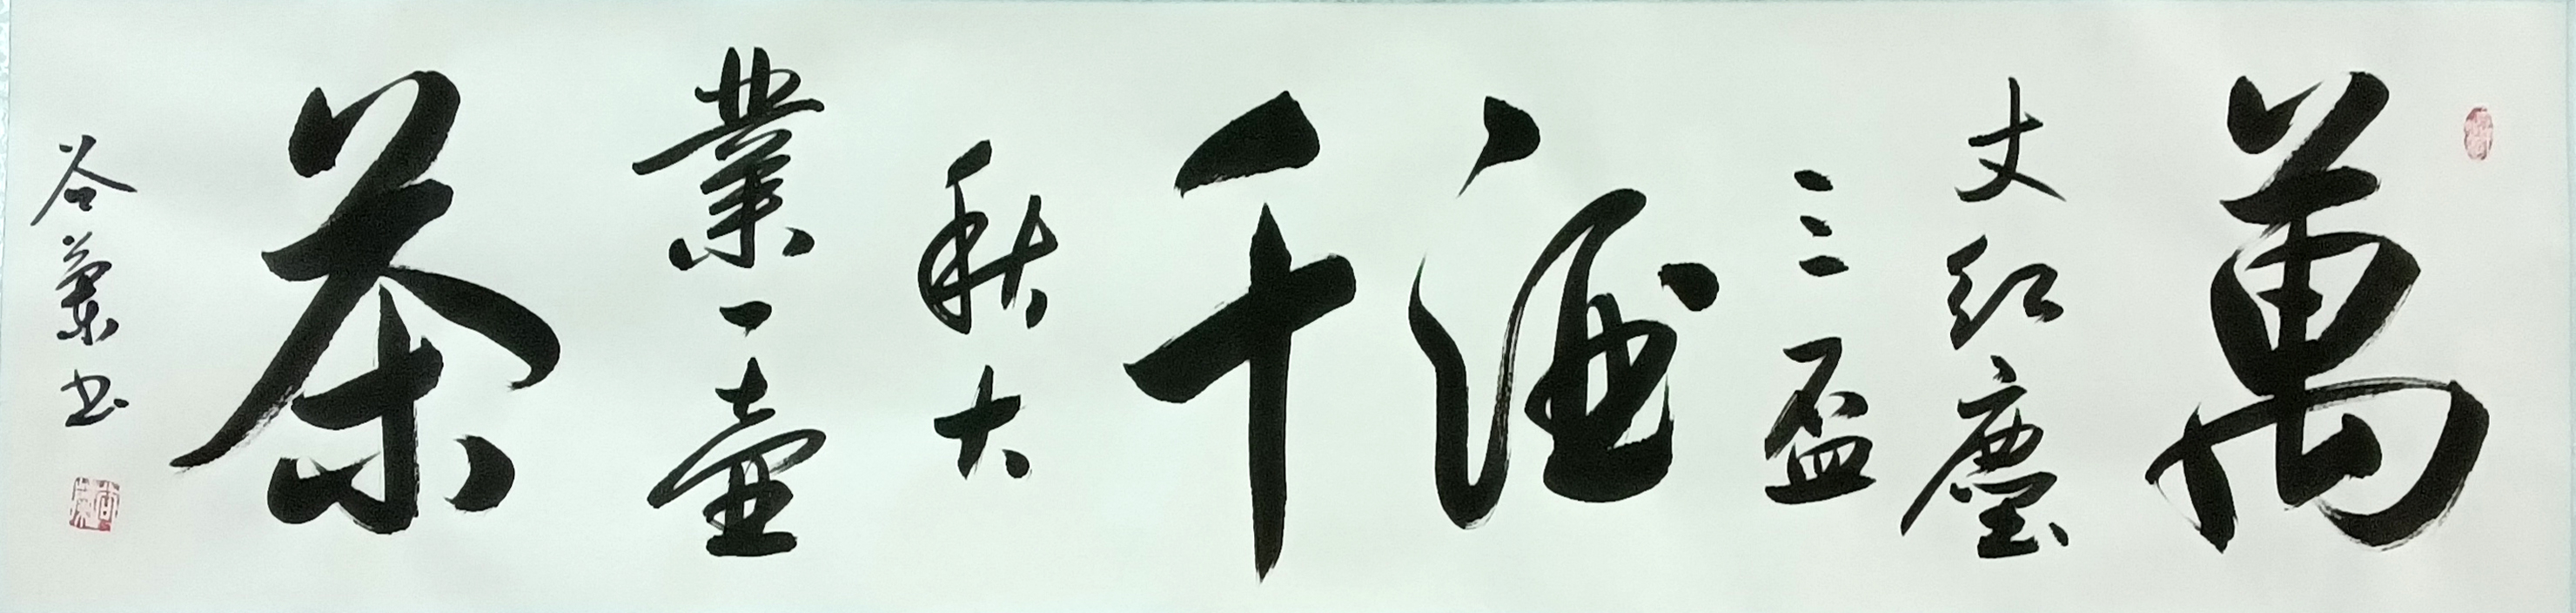 萬
丈紅塵
三盃
酒
千
秋大
業一壷
茶
谷蘭书